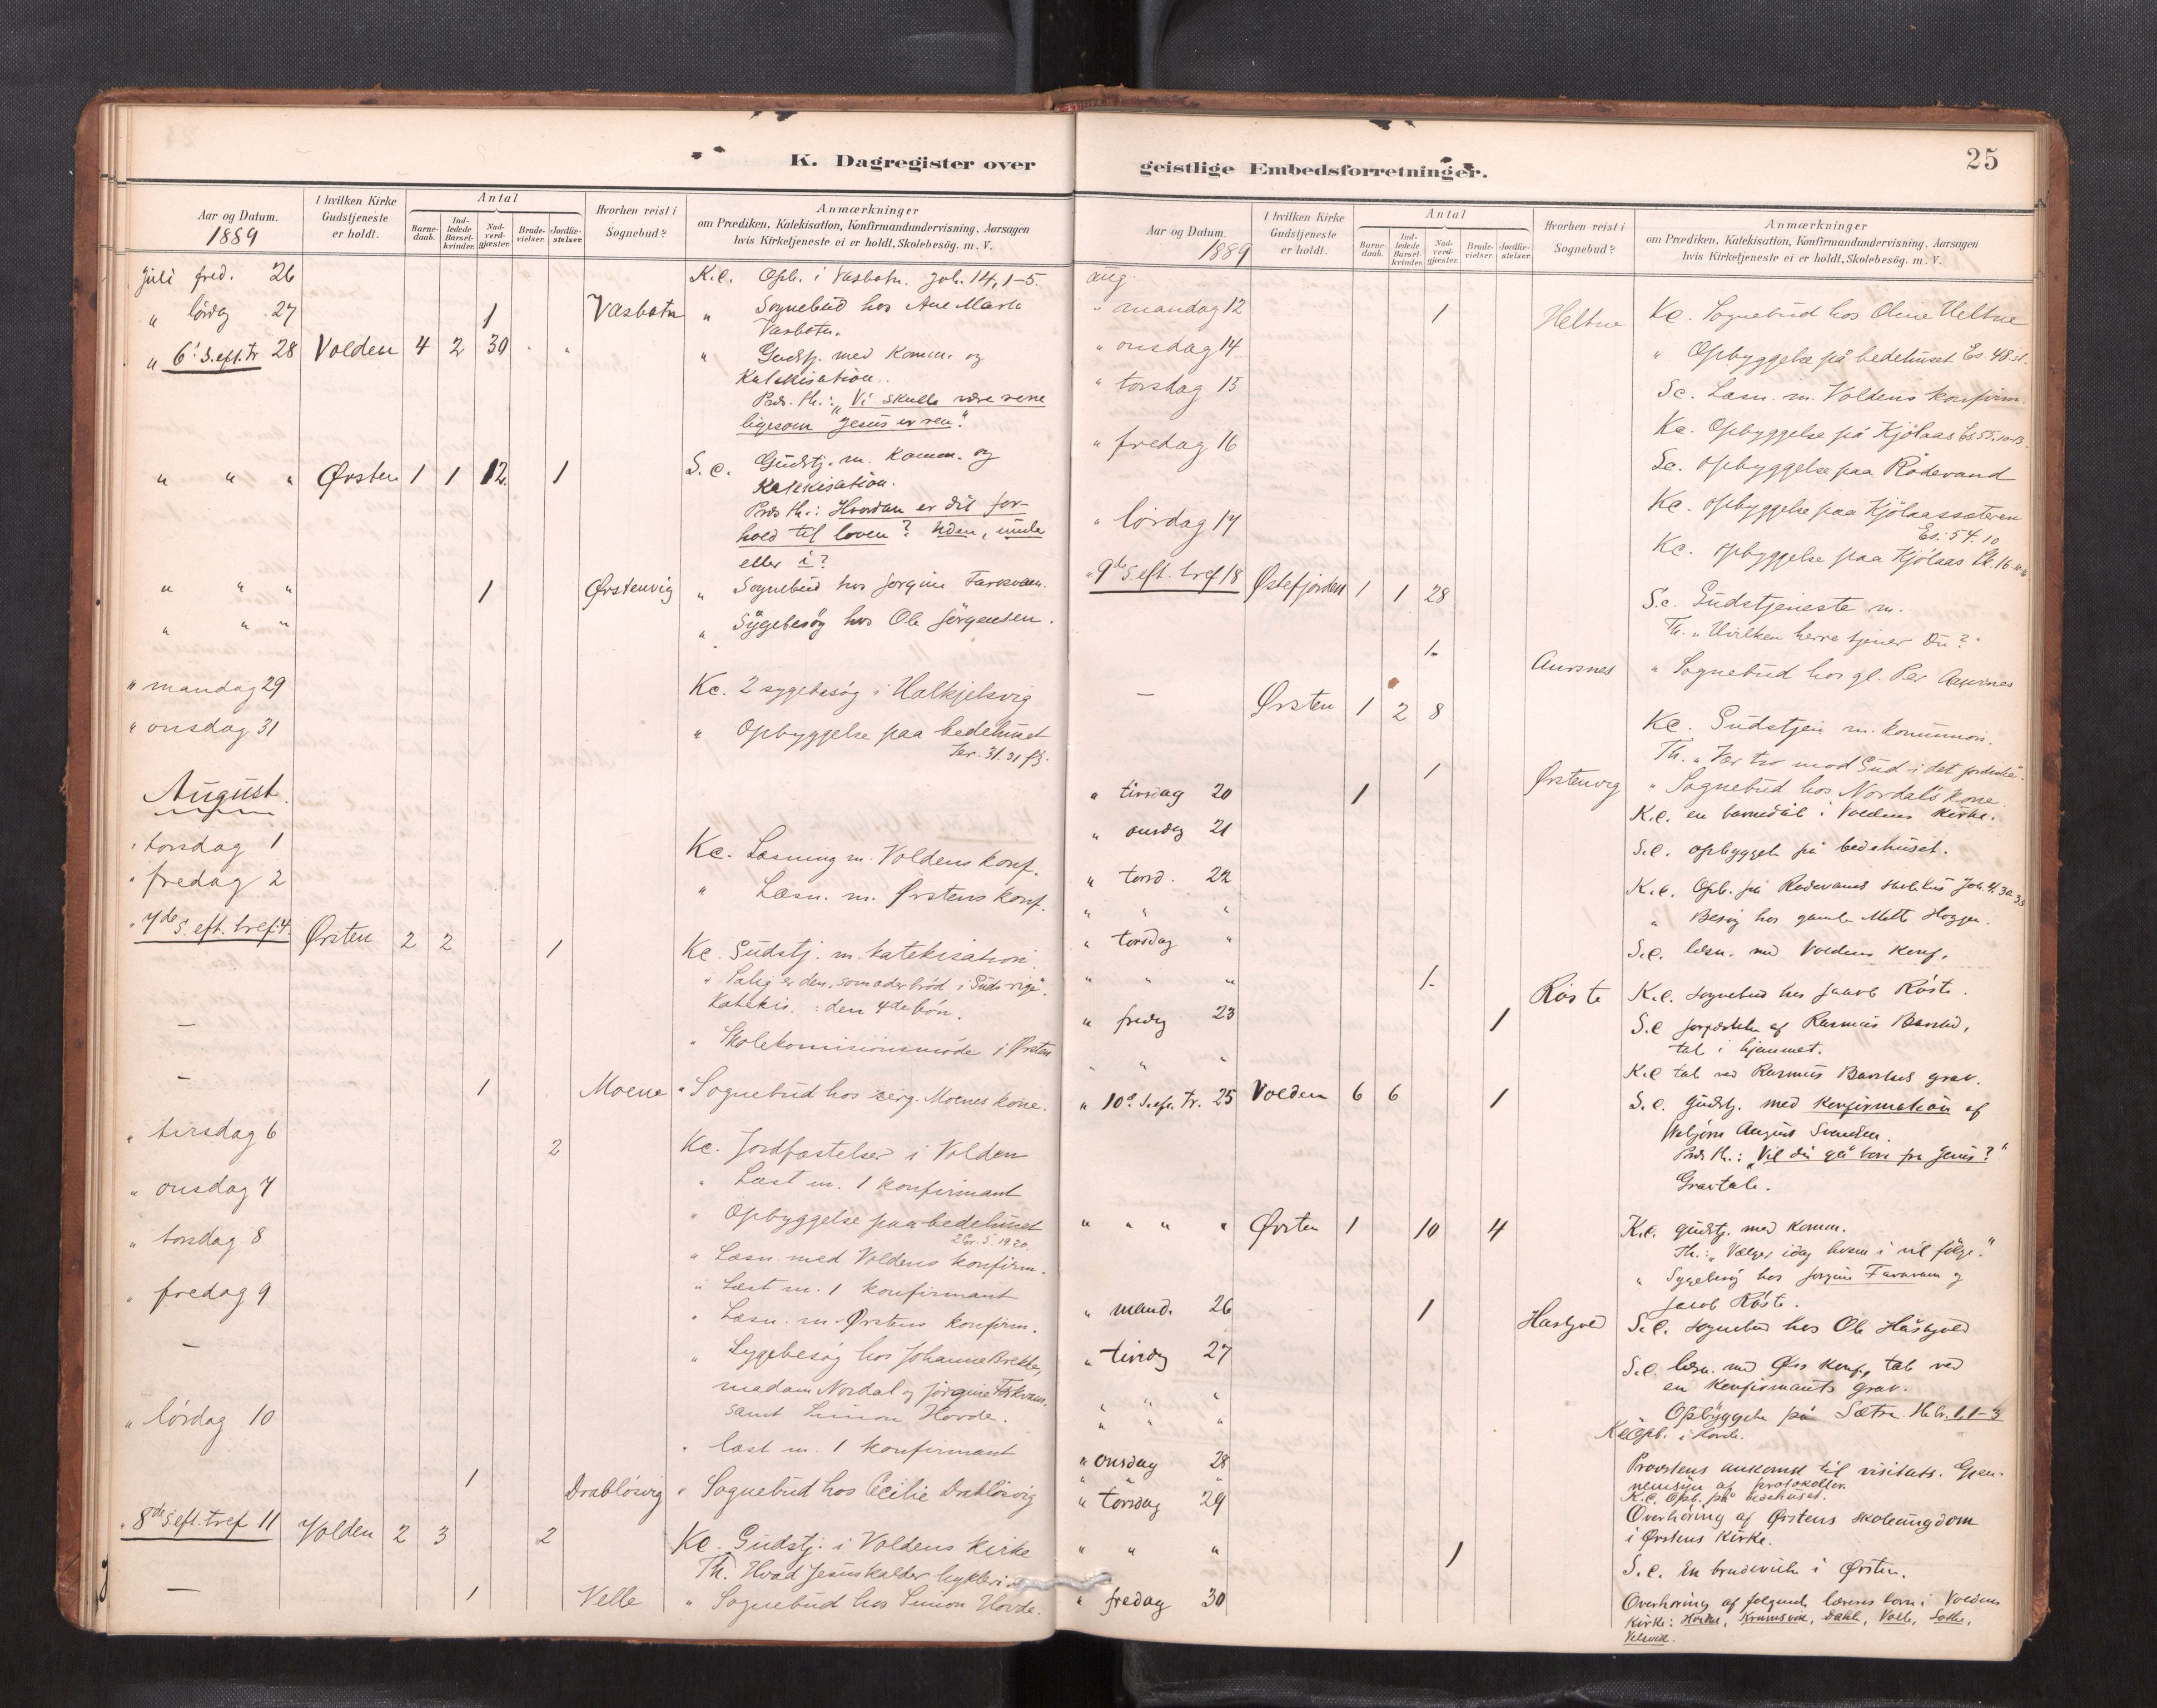 K. Dagregister over
Aar og Datum.
1889
I hvilken Kirke Gudstjeneste er holdt.
Antal
Barne-daab.
Ind-ledede Barsel-kvinder.
Nad-verd-gjæster.
Brude-vielser.
Jordfæ-stelser.
Hvorhen reist i Sognebud?
Anmærkninger
om Prædiken, Katekisation, Konfirmandundervisning, Aarsagen
hvis Kirketjeneste ei er holdt, Skolebesög. m. V.
Juli fred. 26 K.c. Opb. i Vasbotn. Joh. 14, 1-5.
" lördag 27 1 Vasbotn " Sognebud hos Ane Marta
Vasbotn.
" 6. S. eft. Tr 28 Volden 4 2 30 " Gudstj. med Komm. og
Katekisation.
Præd. th.: "Vi skulle være rene
ligesom Jesus er ren."
" " " Örsten 1 1 12. 1 S.c. Gudstj. m. Komm. og
Katekisation.
Præd th.: Hvordan er dit for-
hold til loven? Uden, under
eller i?
" " " 1 Örstenvig " Sognebud hos Jorgine
" " " " Sygebesög hos Ole Jörgensen.
" mandag 29 Kc. 2 sygebesög i Halkjelsvig
" onsdag 31 " Opbyggelse paa bedehuset
Jer. 31. 31 ff
August.
" torsdag 1 Kc. Læsning m. Voldens konf.
" fredag 2 " Læsn. m. Örstens konf.
" 7de S. eft. tref. 4. Örsten 2 2 1 Kc. Gudstj. m. katekisation
"Salig er den, som æder bröd i Guds rige".
Katekis.: den 4de bön.
— " Skolekommisionsmöde i Örsten
— 1 Moene " Sognebud hos Moenes kone.
" tirsdag 6 2 Kc. Jordfæstelser i Volden
" Læst m. 1 konfirmant
" onsdag 7 " Opbyggelse paa bedehuset
2 Cor. 5. 19. 20.
" torsdag 8 " Læsn. med Voldens konfirm.
" Læst m. 1 konfirmant
" fredag 9 " Læsn. m. Örstens konfirm.
— " Sygebesög hos Johanne Brekke,
madam Nordal og Jörgine
samt Simon Hovde.
" lördag 10 " læst m. 1 konfirmant
1 Drablösvig " Sognebud hos Cecilie Drablösvig
" 8de S. eft. tref 11 Volden 2 3 2 Kc. Gudstj. i Voldens kirke
Th. Hvad Jesus kalder hykleri.
— 1 Velle " Sognebud hos Simon Hovde.
geistlige Embedsforretninger.
25
Aar og Datum.
1889
I hvilken Kirke Gudstjeneste er holdt.
Antal
Barne-daab.
Ind-ledede Barsel-kvinder.
Nad-verd-gjæster.
Brude-vielser.
Jordfæ-stelser.
Hvorhen reist i Sognebud?
Anmærkninger
om Prædiken, Katekisation, Konfirmandundervisning, Aarsagen
hvis Kirketjeneste ei er holdt, Skolebesög. m. V.
aug.
" mandag 12 1 Heltne Kc. Sognebud hos Oline Heltne
" onsdag 14 " Opbyggelse på bedehuset Es. 48
" torsdag 15 Sc. Læsn. m. Voldens konfirm.
Kc. Opbyggelse på Kjölaas Es 55. 10-13.
" fredag 16 Sc. opbyggelse paa Rödevand
Kc. opbyggelse paa Kjölaassæteren
Es. 54. 10
" lördag 17 Kc. opbyggelse paa Kjölaas
" 9de S. eft. tref 18 Östefjorden 1 1 28 S.c. Gudstjeneste m.
Th. "Hvilken herre tjener Du?"
1 Aursnes " Sognebud hos gl. Per Aursnes
— Örsten 1 2 8 Kc. Gudstjen m. kommunion.
Th. "Vær tro mod Gud i det jordiske".
1 Örstenvig " Sognebud hos Nordals kone.
" tirsdag 20 1 K.c. en barnedåb i Voldens kirke.
" onsdag 21 S.c. opbyggels på bedehuset.
" torsd. 22 K.c. Opb. på Rødevand skolehus Joh. 4.
" " " " Besög hos gamle Mette
" torsdag " S.c. læsn. med Voldens konf.
" " " 1 Röste K.c. sognebud hos Jakob Röste.
" fredag 23 1 S.c jordfæstelse af Rasmus
tale i hjemmet.
" " " K.c tale ved Rasmus grav.
" 10. S. eft. Tr. 25 Volden 6 6 1 S.c. Gudstj. med Konfirmation af
August Svendsen.
Præd th.: "Vil du gå bort fra Jesus?"
Gravtale.
" " " " Örsten 1 10 4 K.c. gudstj. med komm.
Th.: "Vælger idag hvem i vil fölge."
" Sygebesög hos Jorgine og
Jacob Röste.
" mand. 26 1 Håskjold S.c. sognebud hos Ole Håskjold
" tirsdag 27 S.c. læsn. med Örs konf., tale ved
en konfirmants grav.
" " " Opbyggelse på Sætre Hebr. 1, 1-3
" " " K.c Opb. i Hovde.
" onsdag 28 Provstens ankomst til visitats. Gjen-
nemsyn af protokoller.
" " " K.c. Opb. på bedehuset.
" torsdag 29 Overhöring af Örstens skoleungdom
i Örstens kirke.
" " " 1 S.c. En brudevielse i Örsten.
" fredag 30 Overhöring af fölgende læreres börn i Voldens
kirke: Hovde, Krumsvik, Dahle, Velle,